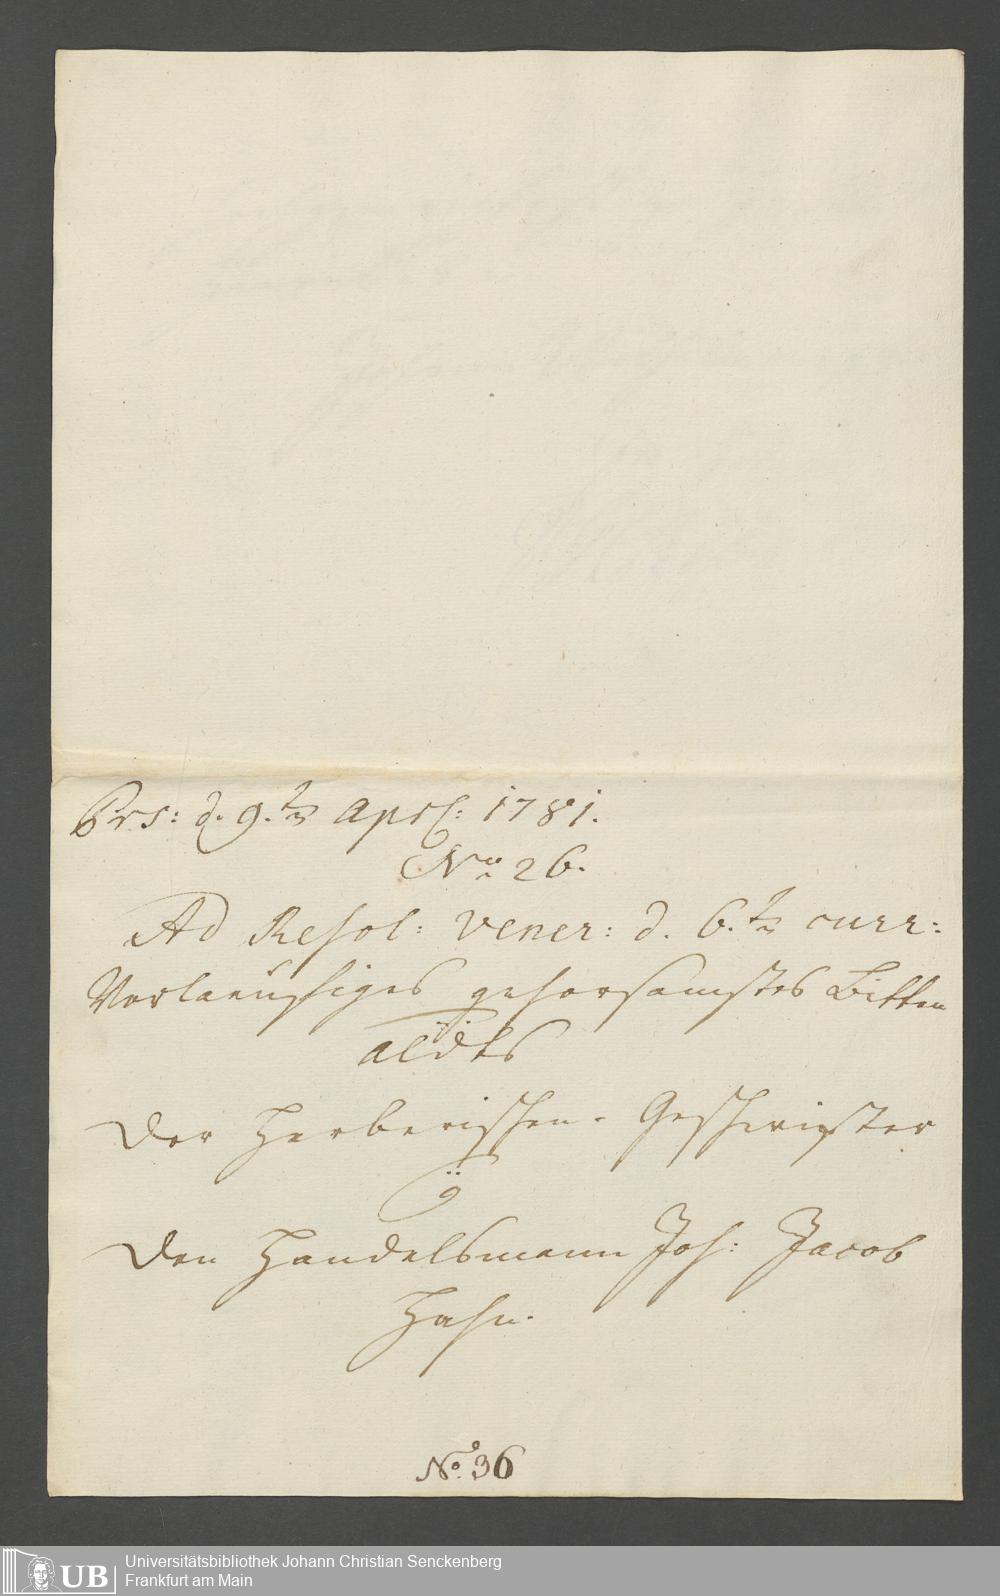 Prs: d. 9.ten Apríl: 1781.
No 26.
Ad Resol: Vener: d. 6.ten curr:
Vorlaeufiges gehorsamstes Bitten
der Gerberischen Geschwister
den Handelsmann Joh: Jacob
Hahn.
No. 36
UB
Universitätsbibliothek Johann Christian Senckenberg
Frankfurt am Main